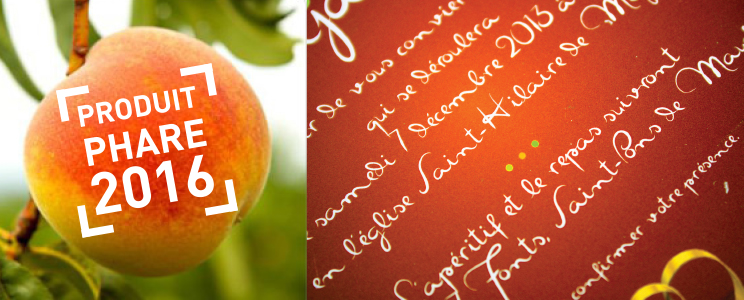 PRODUIT
PHARE
2016
de vous convier
qui se déroulera
samedi 7 décembre 2013 à
en l'église Saint-Hilaire de
L'apéritif et le repas suivront
Fonts, Saint-Pons de
confirmer votre présence.